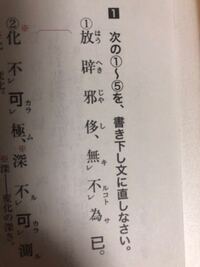 1 次の①～⑤を、書き下し文に直しなさい。
①放辟邪侈、無キレ不ルコトレ為サ已。
ほうへきじやし
②化不レ可カラ極ム、深不ルレ可カラ測
※深―変化の深さ。